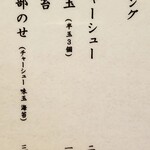 ング
ャーシュー 二
玉(半玉3個) 一
苔
部のせ(チャーシュー 味玉 海苔) 三